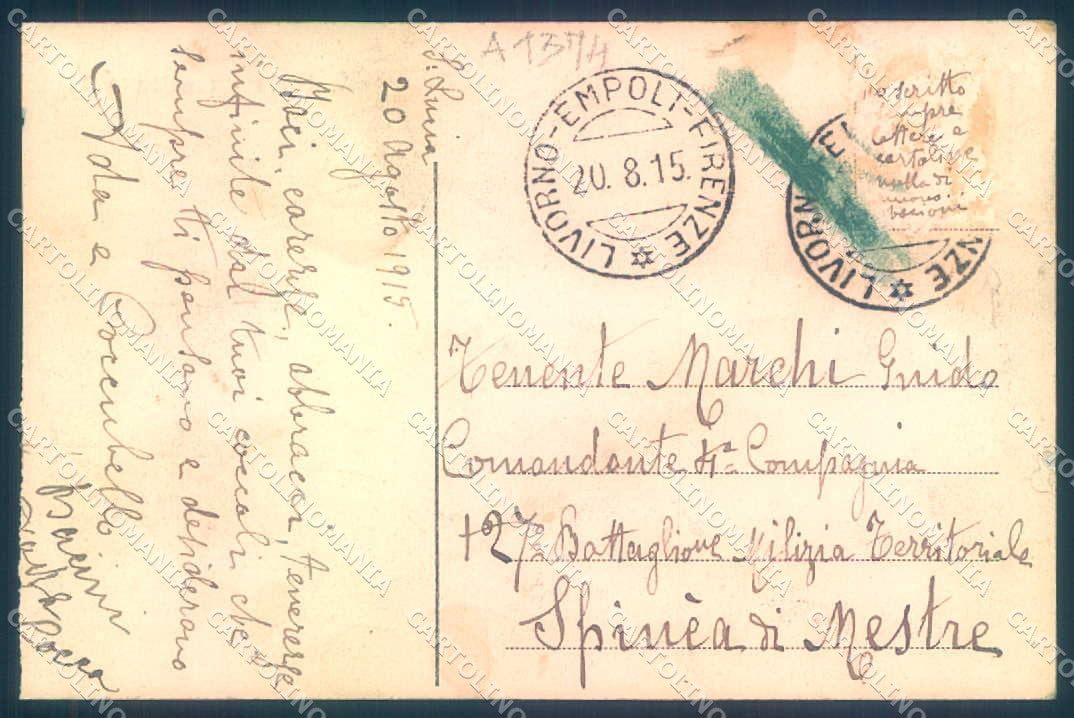 A 1374
20 Agosto 1915.
Baci, carezze, abbracci, tenerezze
infinite dai tuoi coccoli che
sempre ti pensano e desiderano
Ada e
Bacini
LIVORNO-EMPOLI-FIRENZE
20.8.15.
LIVORN
NZE
scritto
sempre
lettere e
cartoline
nulla di
nuovo
bacioni
Tenente Marchi Guido
Comandante 4a Compagnia
127o Battaglione Milizia Territoriale
Spinèa di Mestre
CARTOLINOMANIA